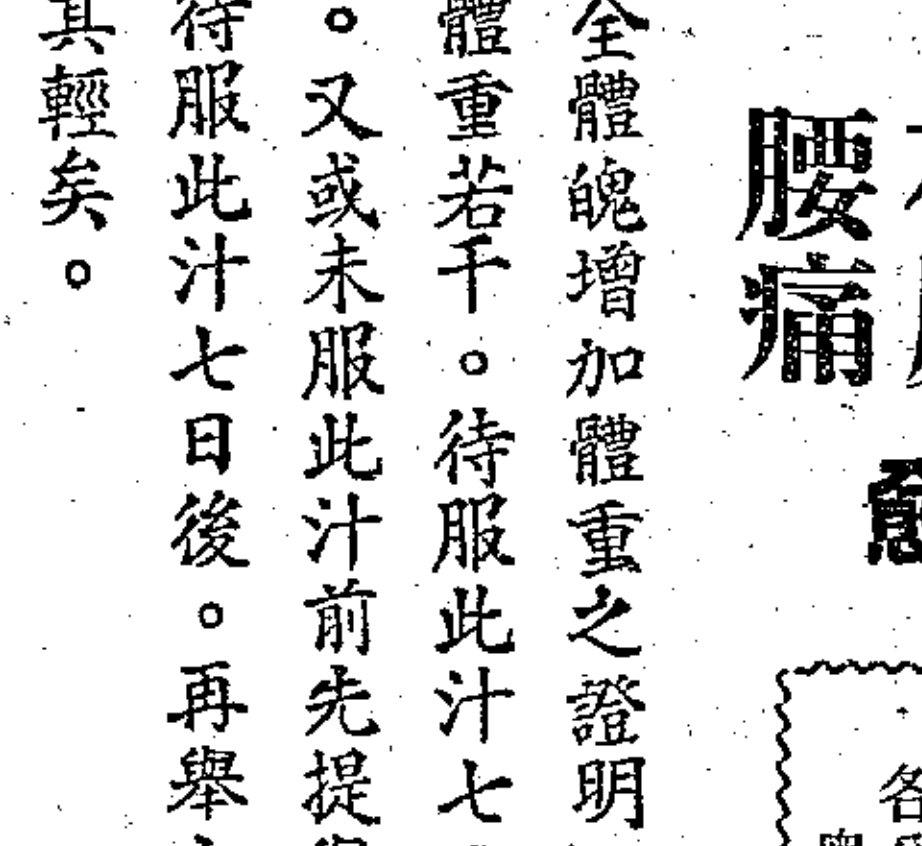 腰痛
各
全體魄增加體重之證明
體重若干。待服此汁七
。又或未服此汁前先提
待服此汁七日後。再舉
其輕矣。